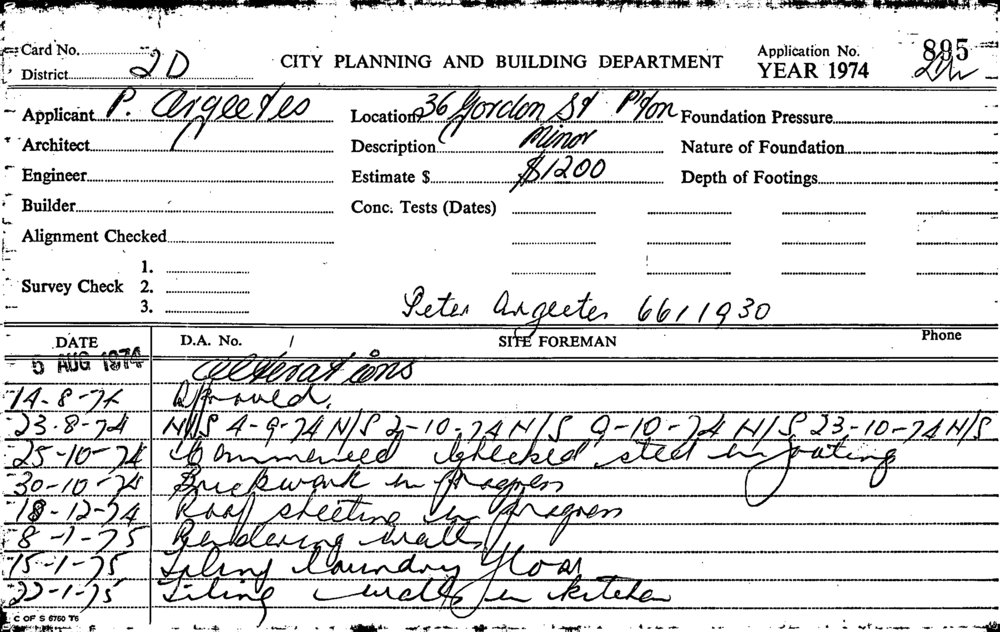 Card No. Application No. 895
District 2D CITY PLANNING AND BUILDING DEPARTMENT YEAR 1974
Applicant P. Argeetes Location 36 Gordon St P'ton Foundation Pressure
Architect Description Minor Nature of Foundation
Engineer Estimate $ $1200 Depth of Footings
Builder Conc. Tests (Dates)
Alignment Checked
1.
Survey Check 2.
3.
Peter Argeetes 6611930
DATE D.A. No. / SITE FOREMAN Phone
5 AUG 1974 Alterations
14-8-74 Approved.
23-8-74 N/S 4-9-74 N/S 2-10-74 N/S 9-10-74 N/S 23-10-74 N/S
25-10-74 Commenced Checked steel in footing
30-10-74 Brickwork in progress
18-12-74 Roof sheeting in progress
8-1-75 Rendering walls
15-1-75 Tiling laundry floor
22-1-75 Tiling walls in kitchen
C OF S 6750 T6